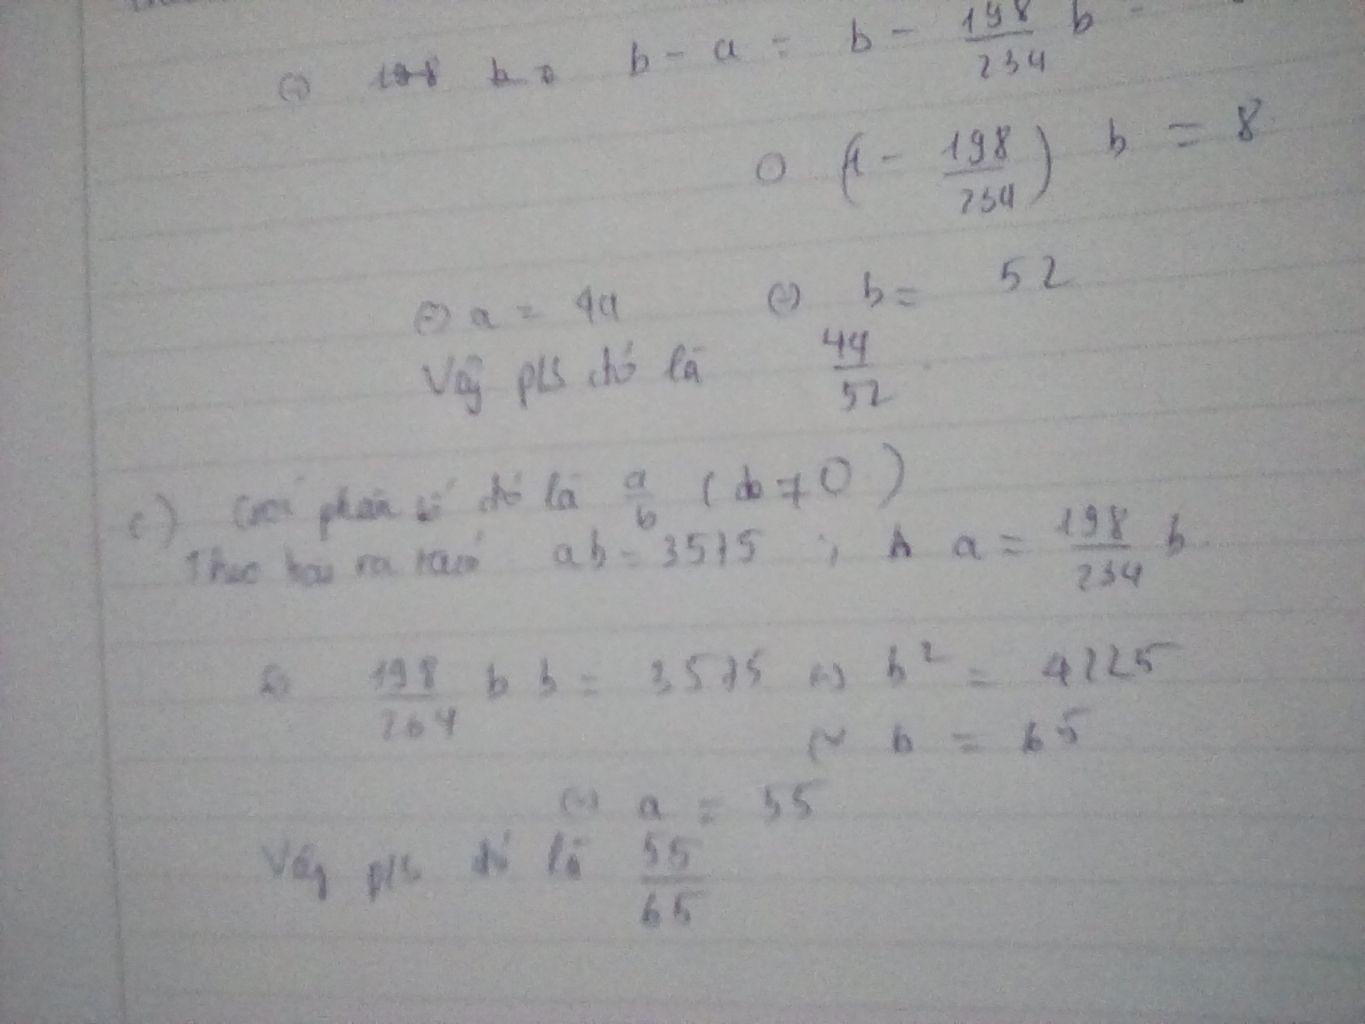 ⇔ b - a = b - 198/234 b
⇔ (1 - 198/234) b = 8
⇔ b = 52
⇔ a = 44
Vậy pls đó là 44/52.
c) Gọi phân số đó là a/b (b ≠ 0)
Theo bài ra ta có ab = 3575 ; a = 198/234 b.
⇔ 198/264 b b = 3575 ⇔ b² = 4225
b = 65
⇔ a = 55
Vậy pls đó là 55/65